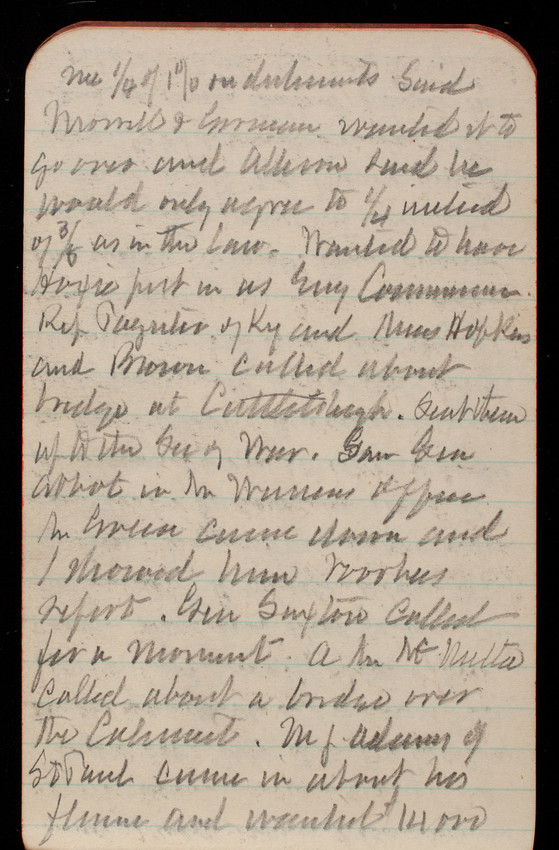 me 1/4 of 1% on Said
Morrill & Gorman wanted it to
go over and Allison said he
would only agree to 1/4 instead
of 3/8 as in the law. Wanted to have
put in as Eng Commission.
Rep Paynter of Ky and Hopkins
and Brown called about
bridge at Catlettsburgh. Sent them
up to the Sec of War. Saw Gen
Abbot in Mr Office
Mr Green came down and
I showed him Voorhees
report. Gen Saxton called
for a moment. A Mr
called about a bridge over
the Calumet. Mr J Adams of
St Paul came in about his
flume and wanted 14000